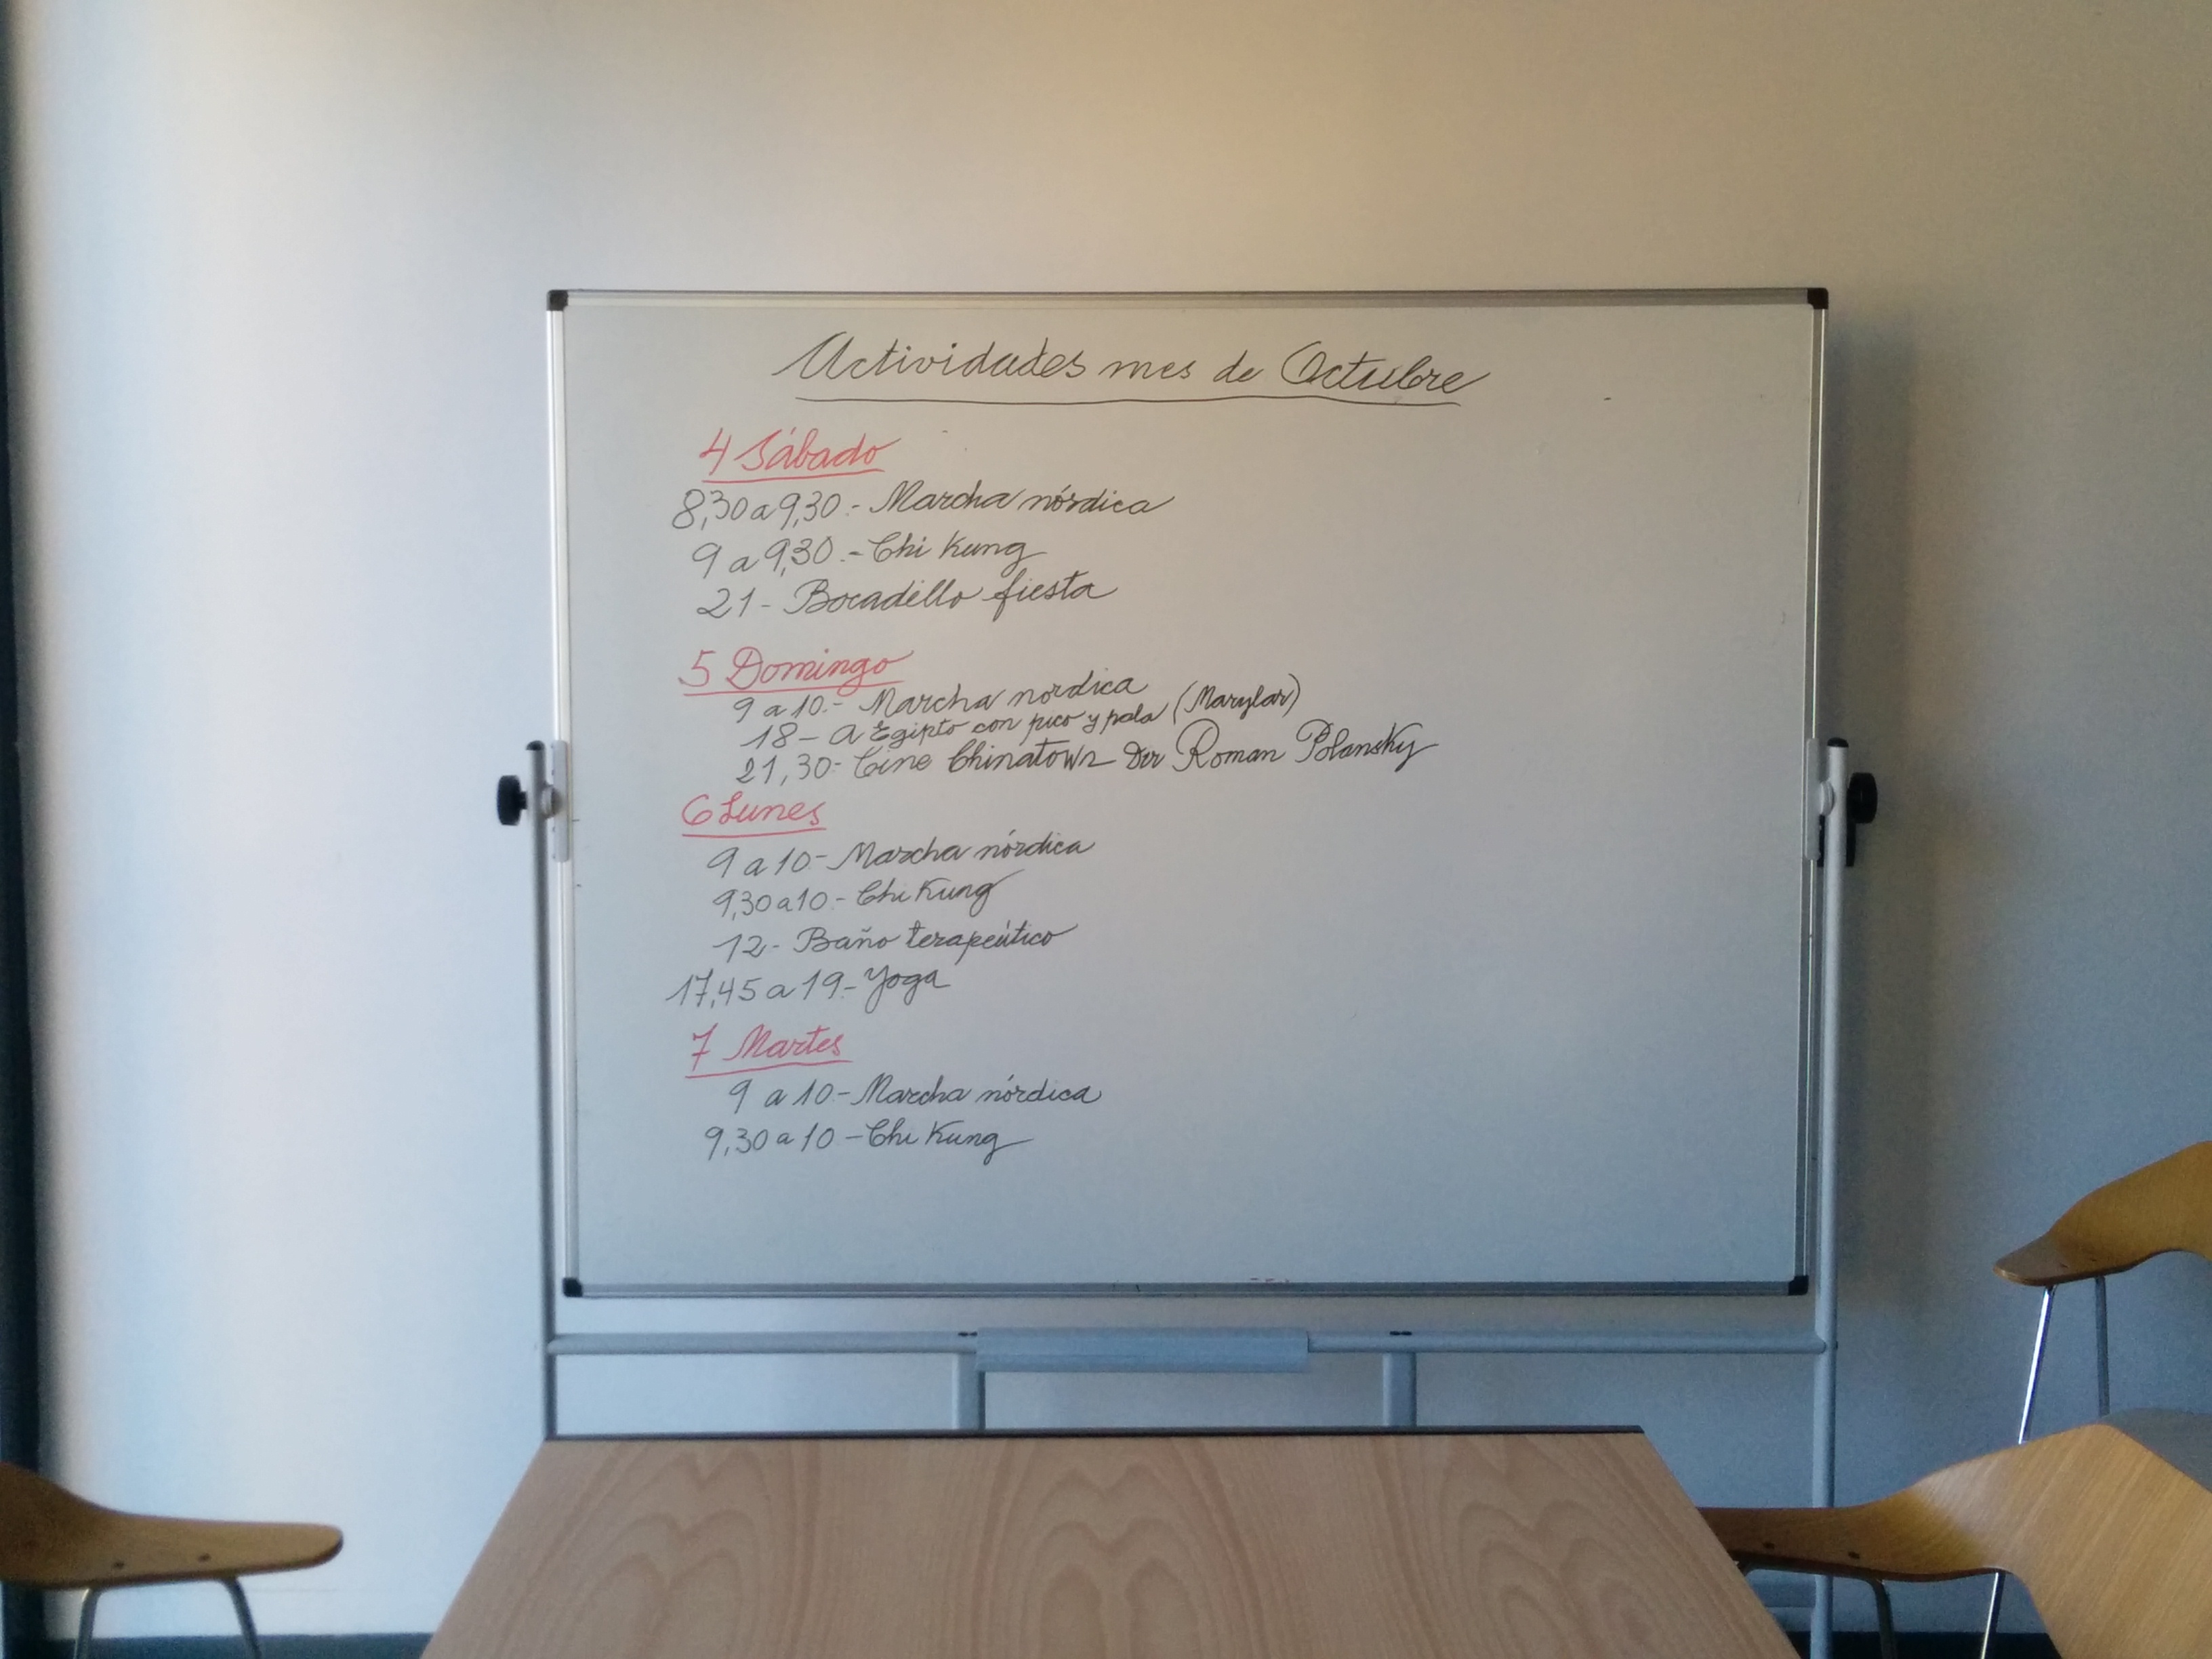 Actividades mes de Octubre
4 Sábado
8,30 a 9,30.- Marcha nórdica
9 a 9,30.- Chi Kung
21- Bocadillo fiesta
5 Domingo
9 a 10.- Marcha nordica
18- A Egipto con pico y pala (Marylar)
21,30- Cine Chinatown Dir Roman Polansky
6 Lunes
9 a 10- Marcha nórdica
9,30 a 10- Chi Kung
12- Baño terapeútico
17,45 a 19- Yoga
7 Martes
9 a 10- Marcha nórdica
9,30 a 10 - Chi Kung